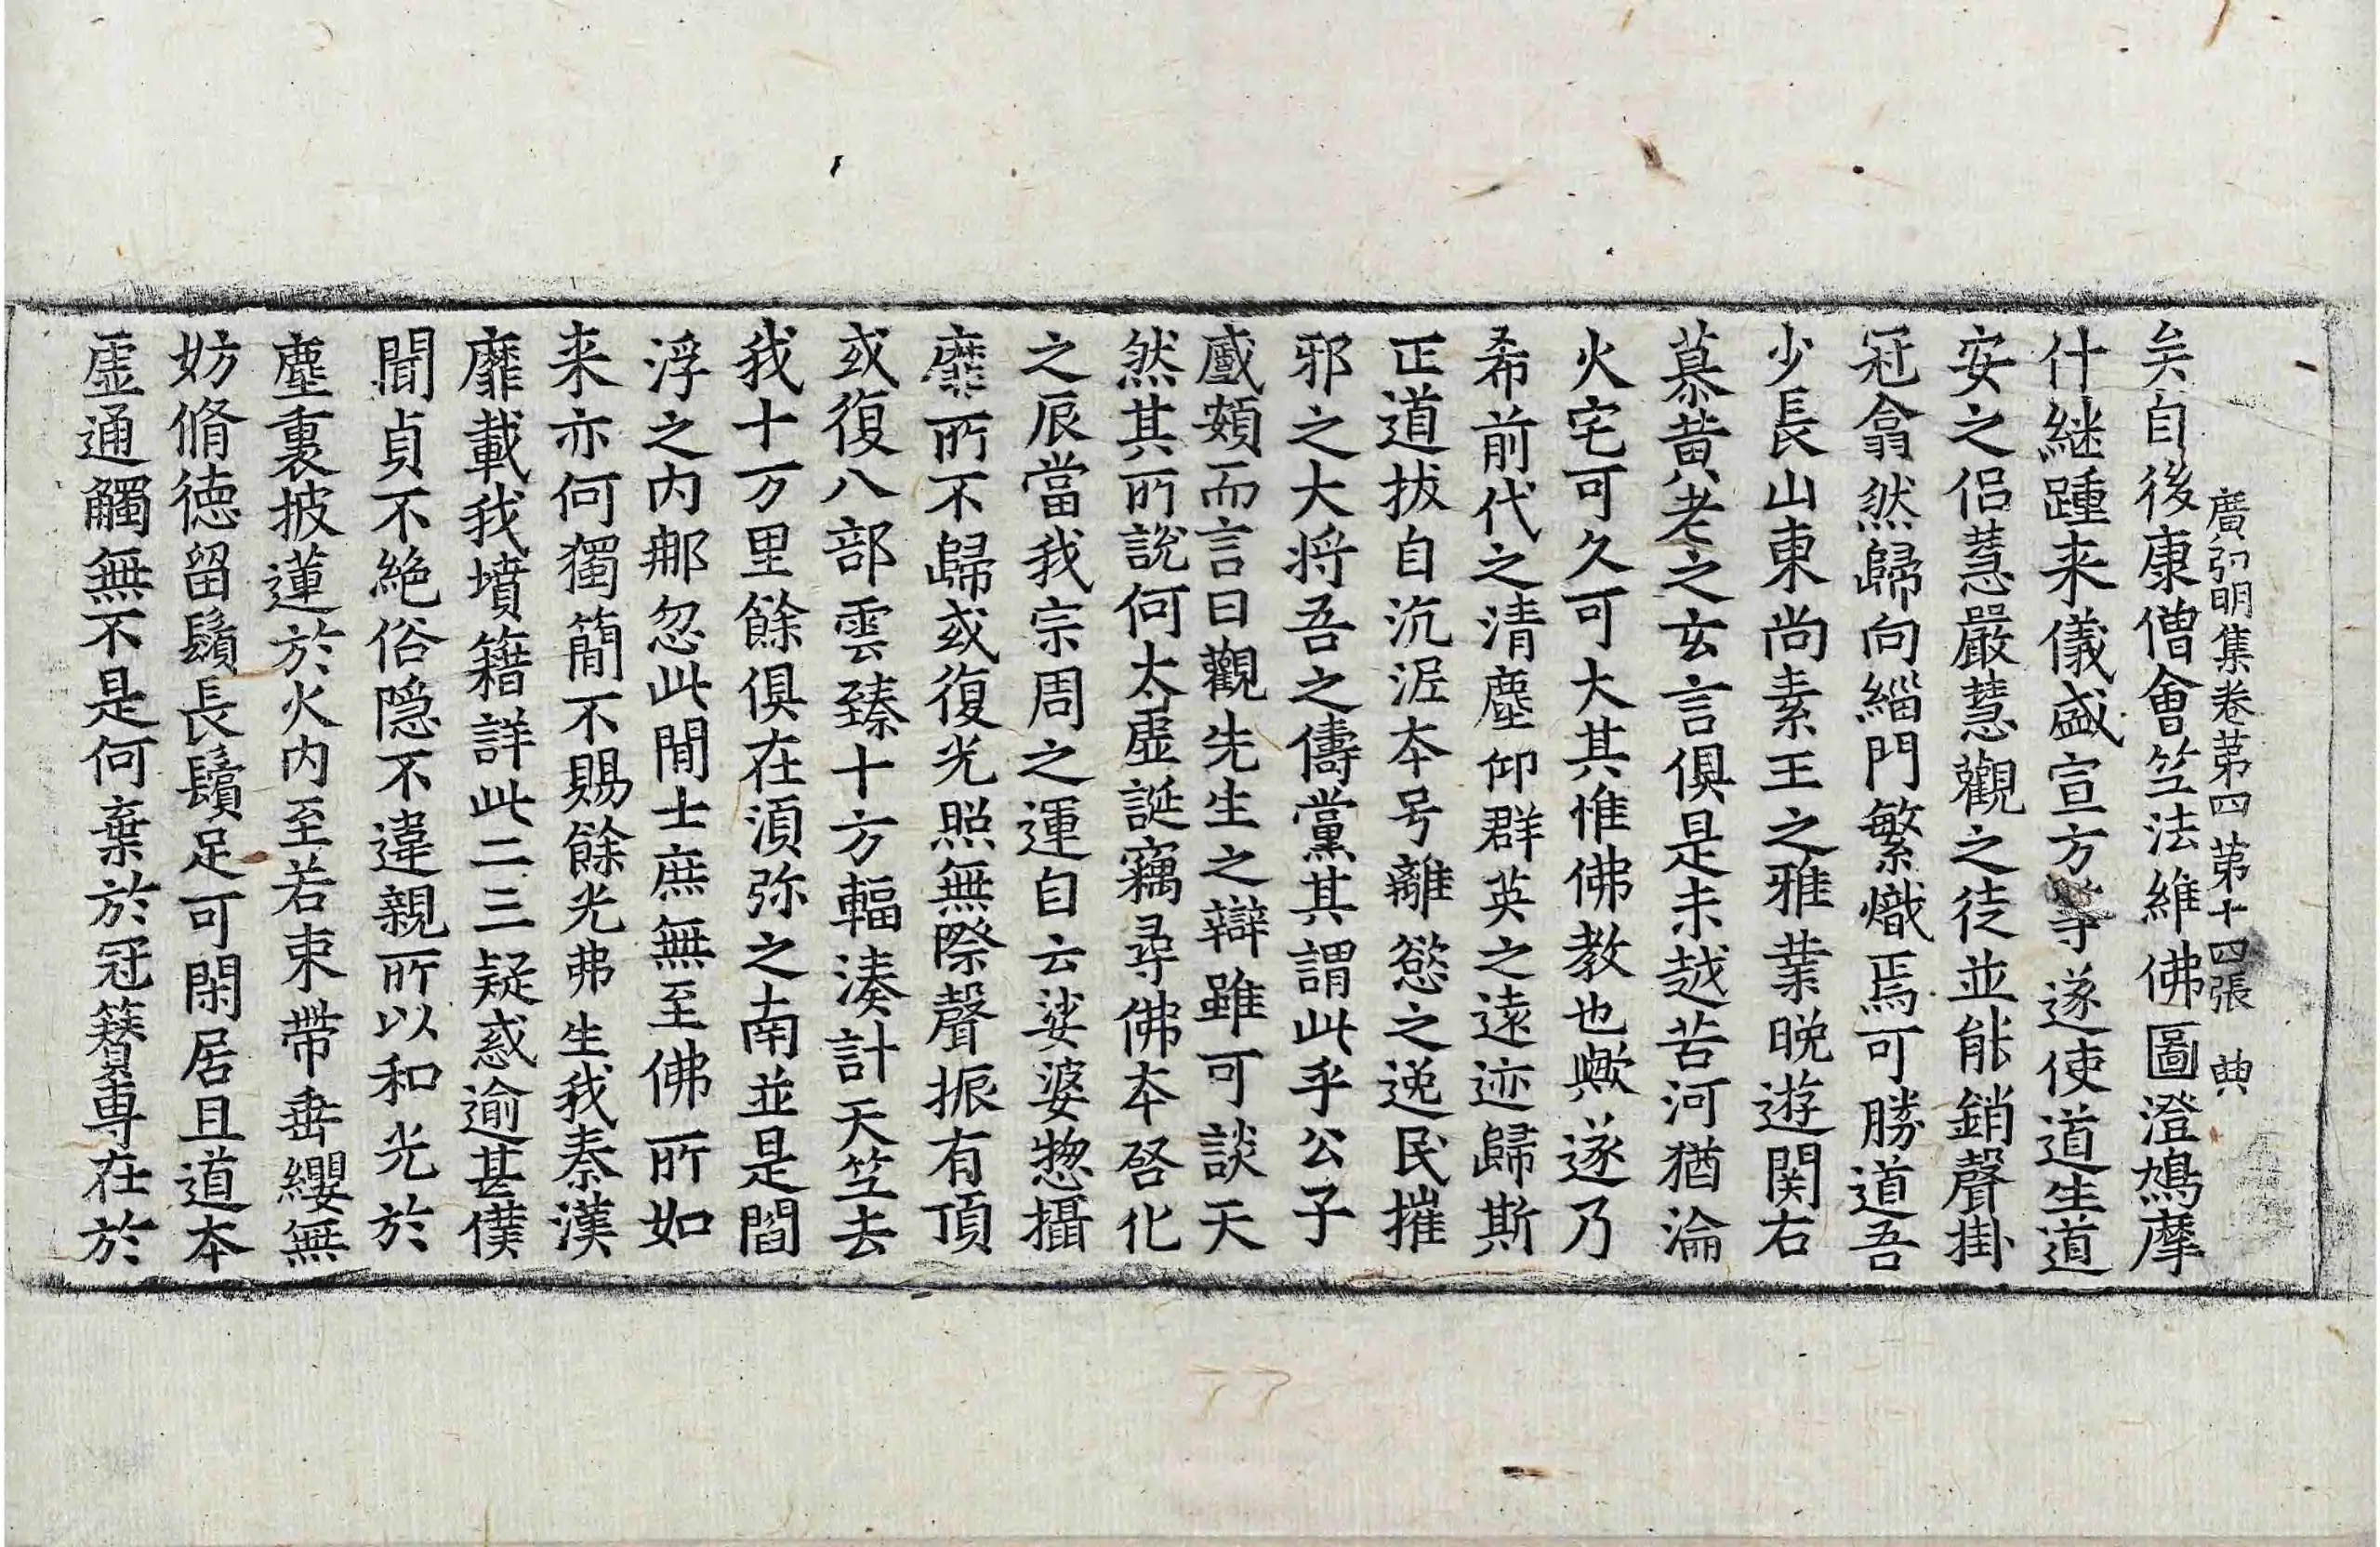 廣弘明集卷苐四苐十四張　典
矣自後康僧會笁法維佛圖澄鳩摩
什継踵来儀盛宣方等遂使道生道
安之侣慧嚴慧觀之徒並能銷聲掛
冠翕然歸向緇門繁熾焉可勝道吾
少長山東尚素王之雅業晚遊関右
慕黄老之玄言俱是未越苦河猶淪
火宅可久可大其惟佛教也歟遂乃
希前代之清塵仰群英之遠迹歸斯
正道拔自沉泥本号離慾之逸民摧
邪之大将吾之儔黨其謂此乎公子
慼頞而言曰觀先生之辯雖可談天
然其所說何太虛誕竊尋佛本啓化
之辰當我宗周之運自云娑婆惣攝
靡所不歸或復光照無際聲振有頂
或復八部雲臻十方輻湊計天笁去
我十万里餘俱在湏弥之南並是閻
浮之内那忽此間士庶無至佛所如
来亦何獨簡不賜餘光弗生我秦漢
靡載我墳籍詳此二三疑惑逾甚僕
聞貞不絶俗隐不違親所以和光於
塵裏披蓮於火内至若束帶垂纓無
妨脩德留鬚長鬢足可閑居且道本
虛通觸無不是何棄於冠簪專在於